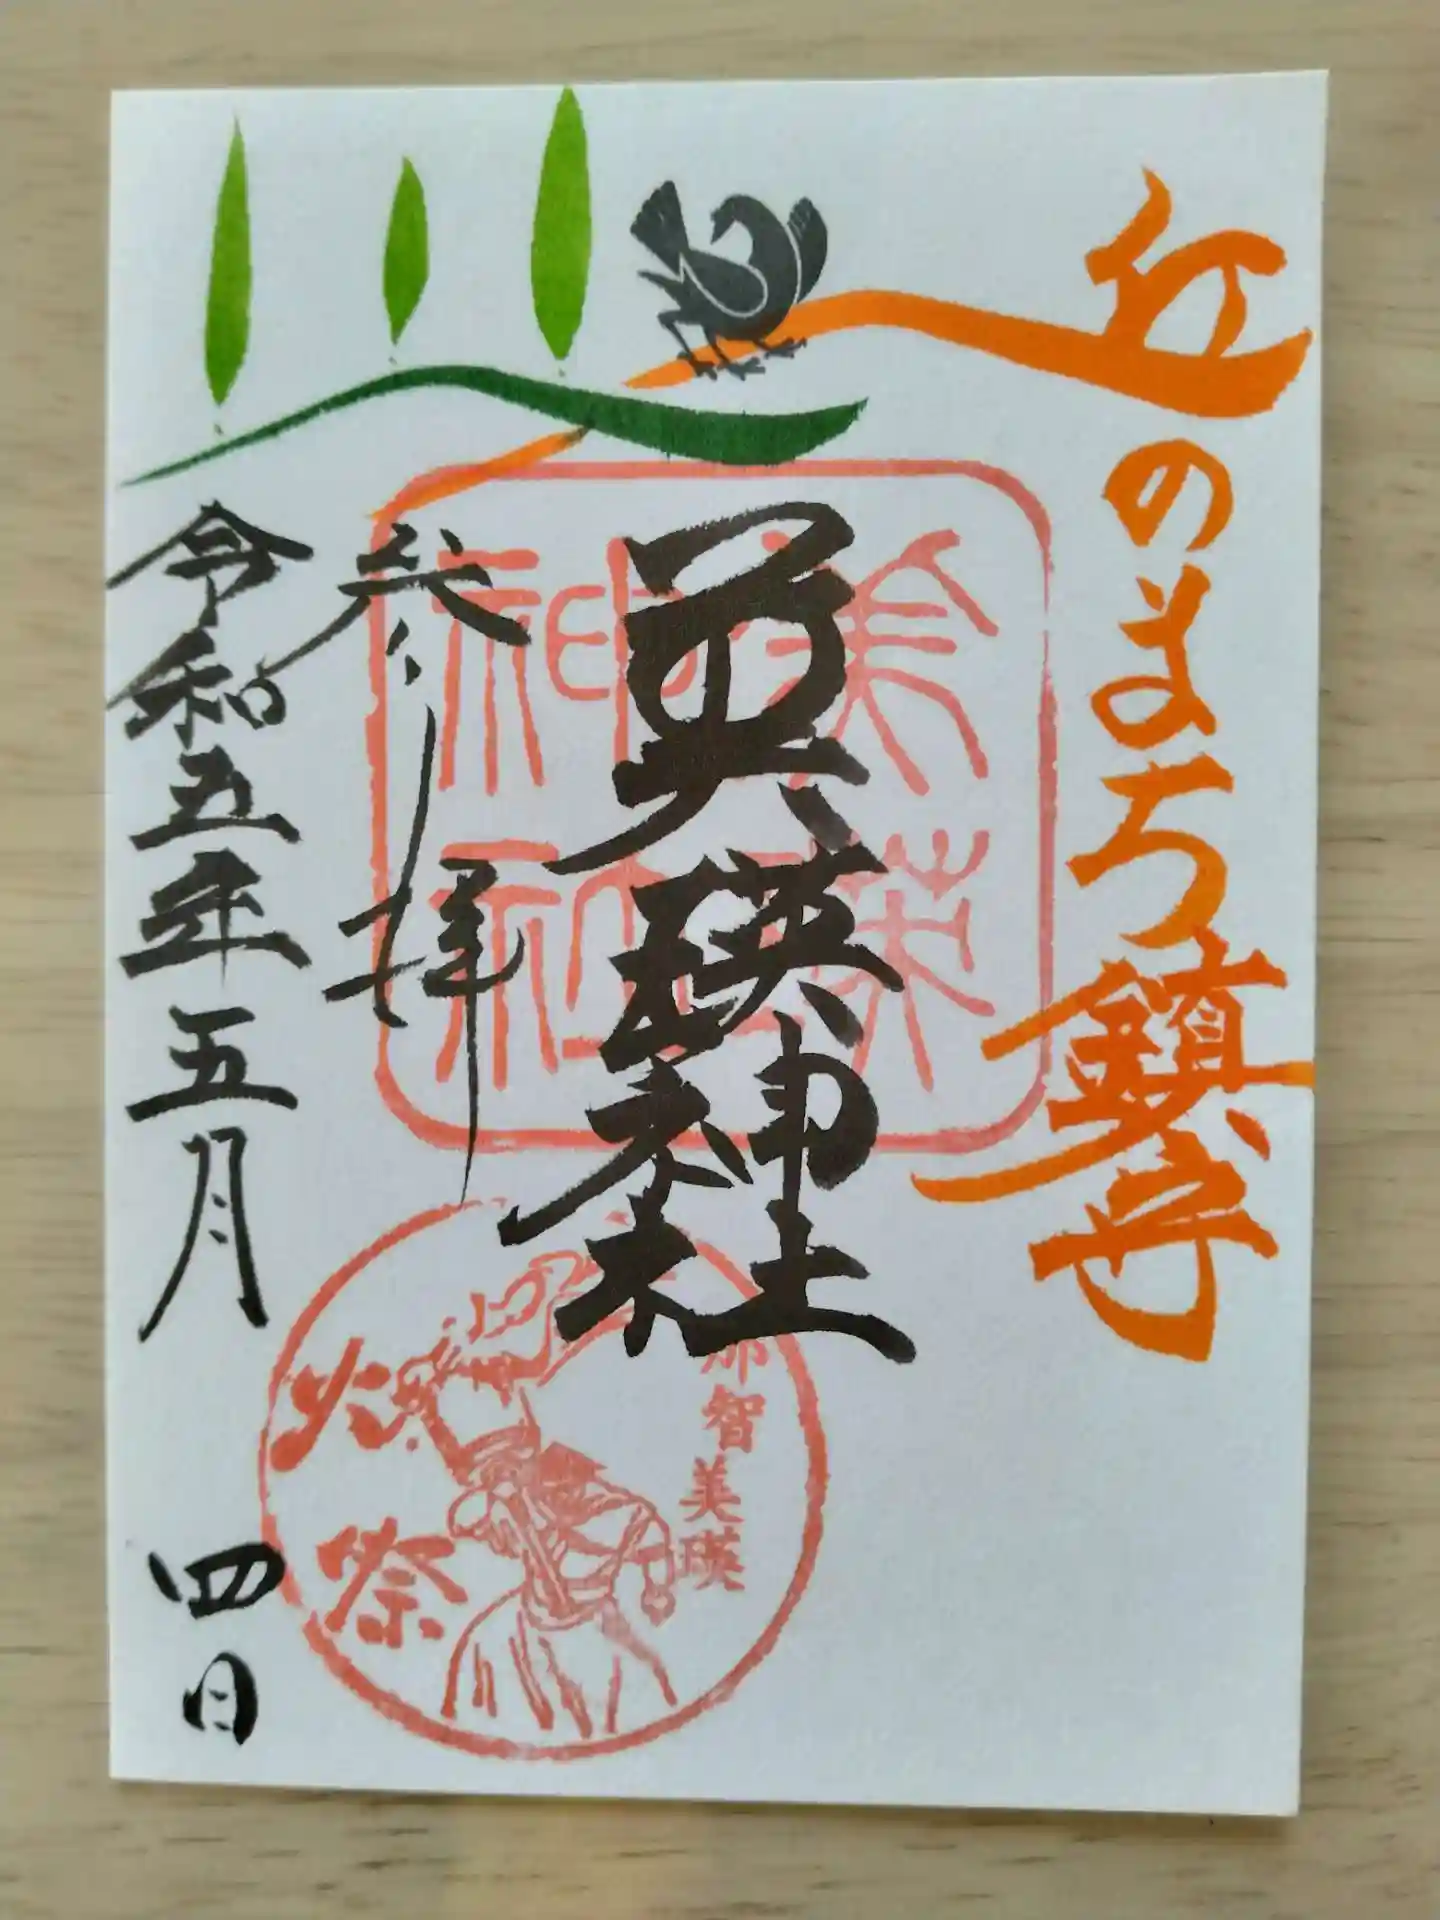 丘のまち鎮守
美瑛神社
参拝
令和五年五月四日
美瑛神社
那智美瑛
火祭